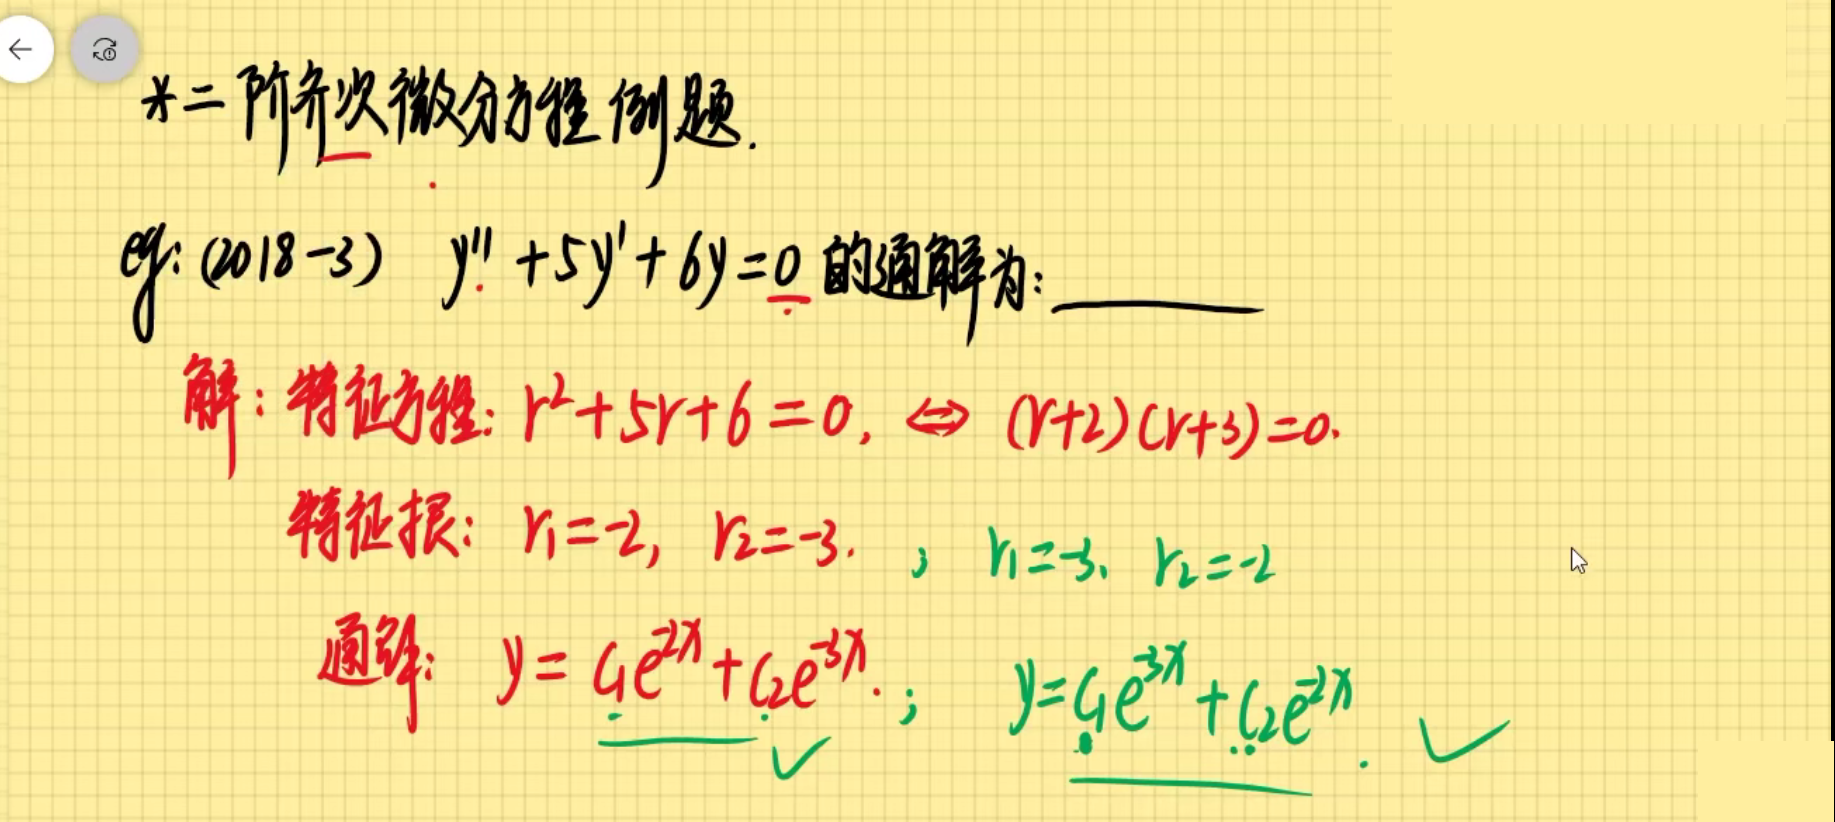 *二阶齐次微分方程例题.
eg: (2018-3) y''+5y'+6y=0的通解为: ______
解: 特征方程: r²+5r+6=0, ⇔ (r+2)(r+3)=0.
特征根: r₁=-2, r₂=-3. ; r₁=-3、r₂=-2
通解: y=C₁e⁻²ˣ+C₂e⁻³ˣ. ; y=C₁e⁻³ˣ+C₂e⁻²ˣ. ✓
✓